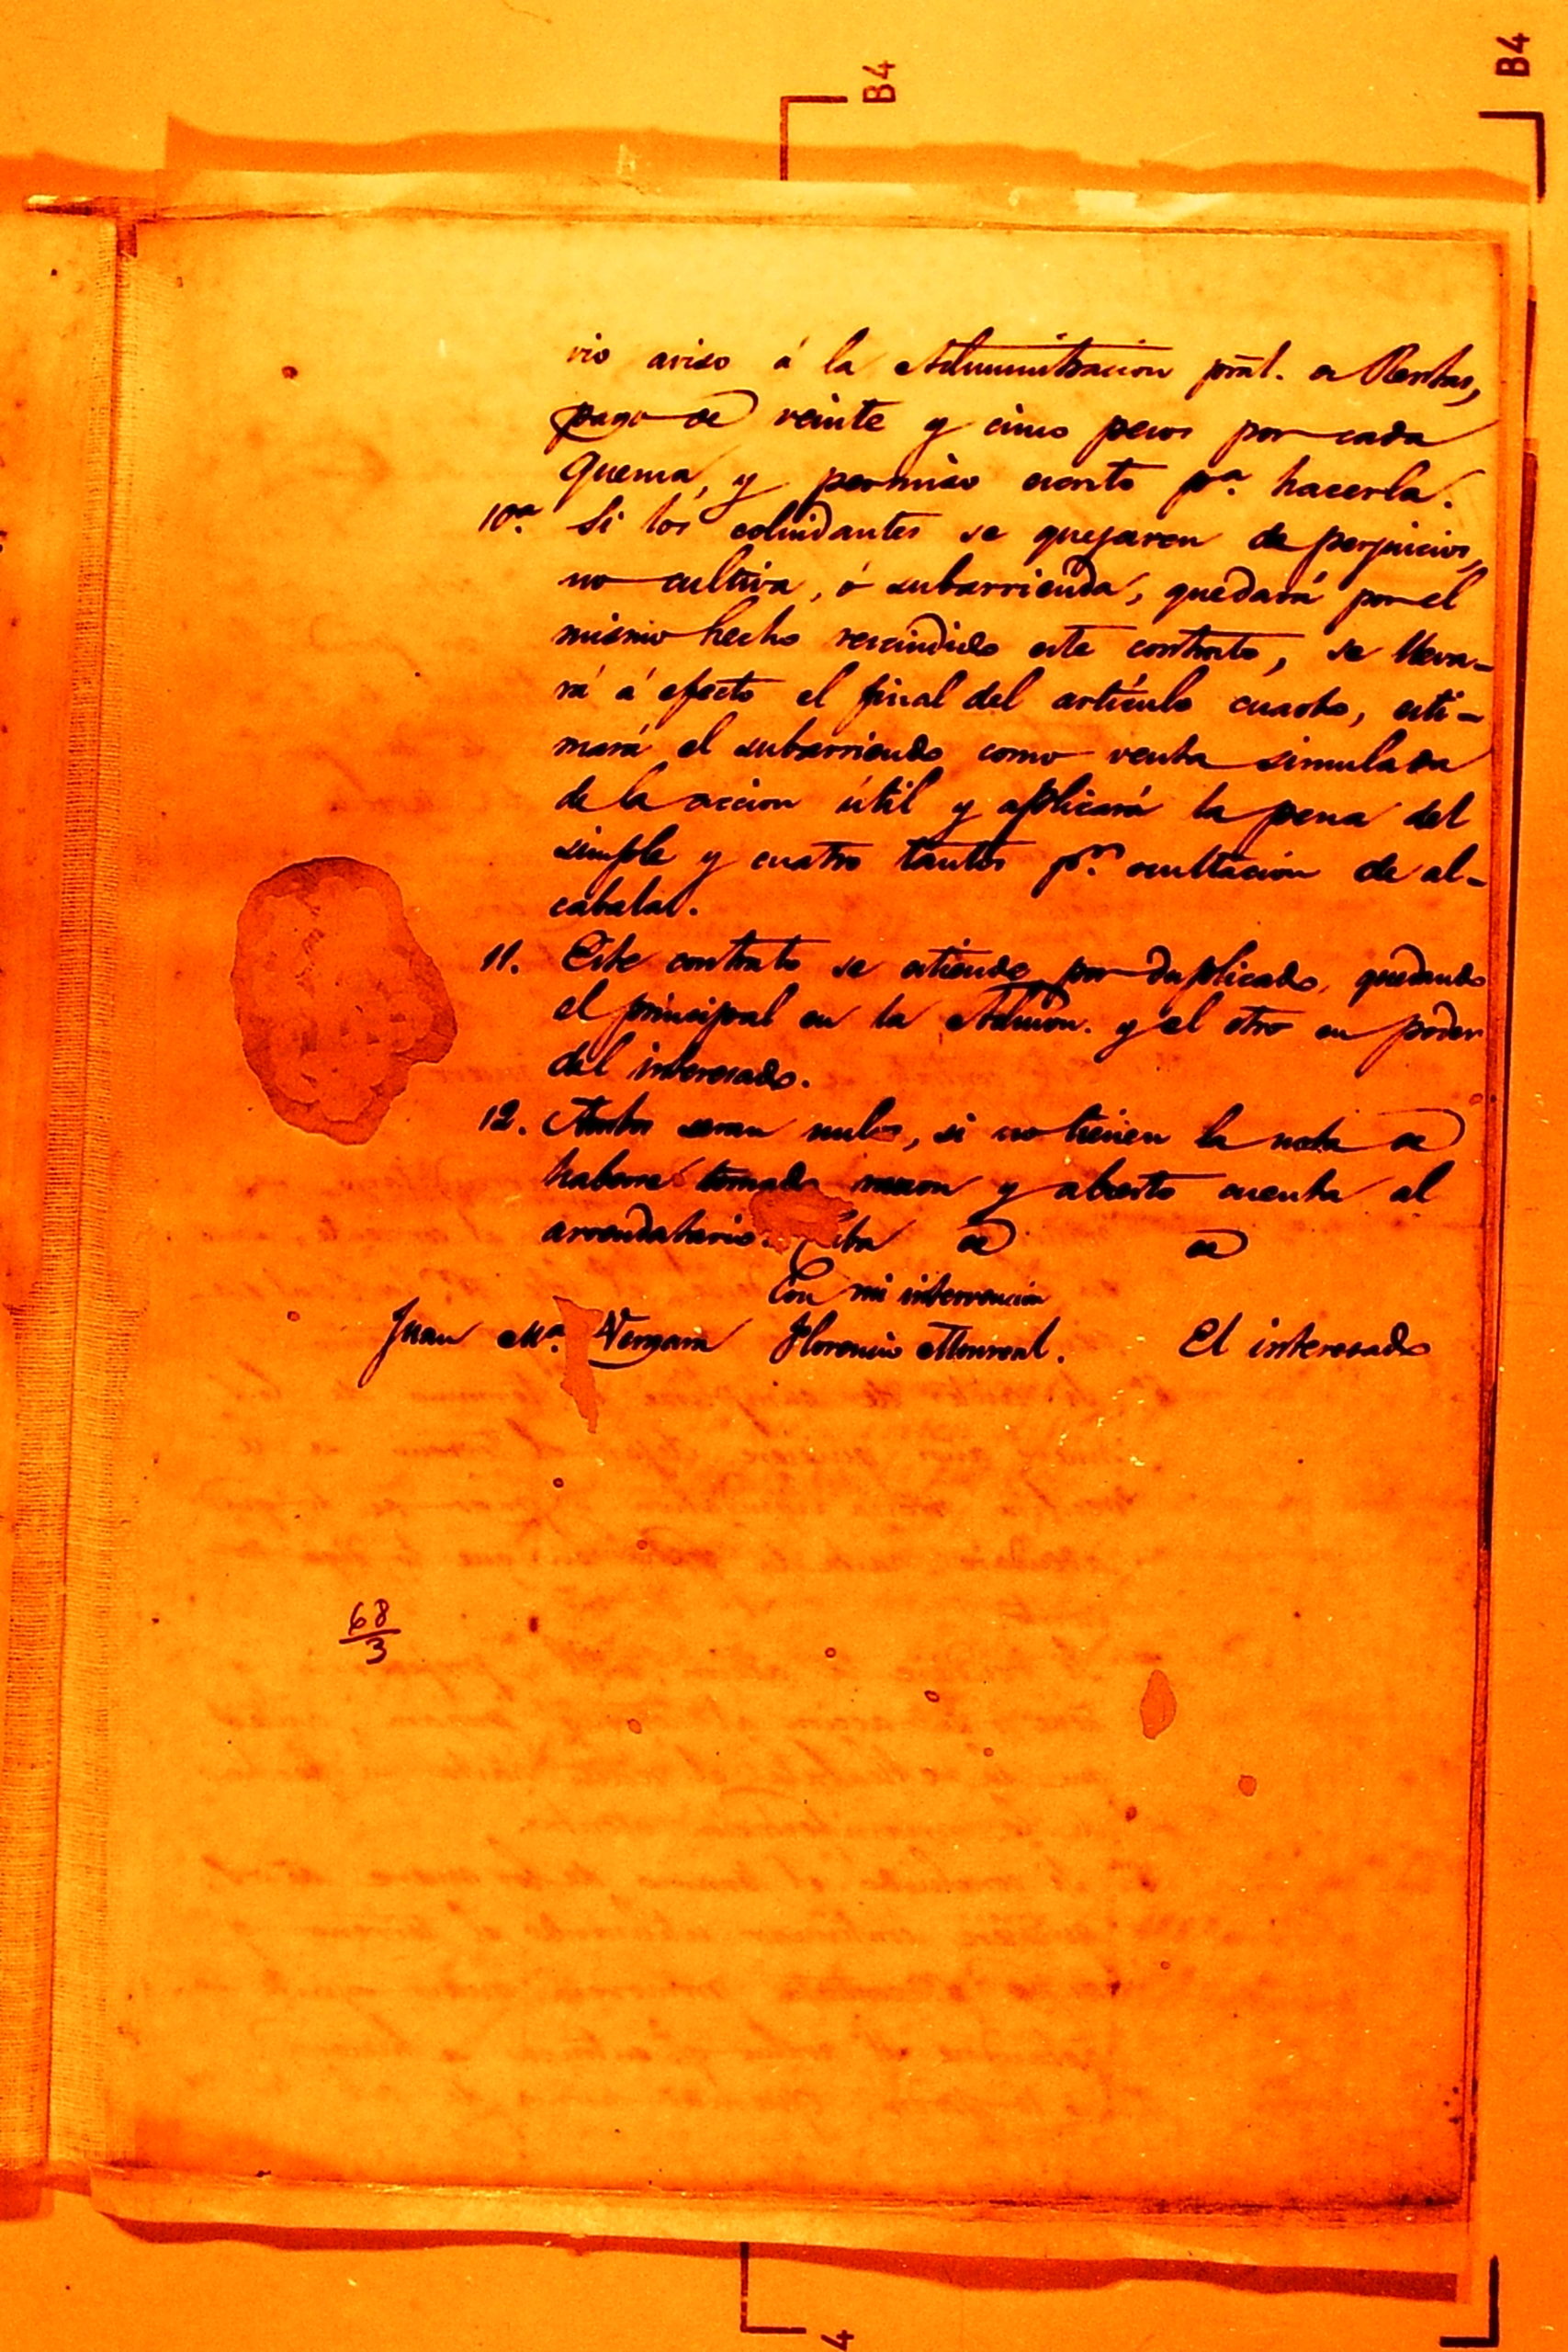 B4
B4
vio aviso á la Administracion pral. de Rentas,
pago de veinte y cinco pesos por cada
quema, y permiso escrito pa. hacerla.
10a. Si los colindantes se quejaren de perjuicios,
no cultiva, ó subarrienda, quedará por el
mismo hecho rescindido este contrato, se lleva-
rá á efecto el final del artículo cuarto, esti-
mará el subarriendo como venta simulada
de la accion útil y aplicará la pena del
simple y cuatro tantos pr. ocultacion de al-
cabalas.
11. Este contrato se estiende por duplicado, quedando
el principal en la Admon. y el otro en poder
del interesado.
12. Ambos seran nulos, si no tienen la nota de
haberse tomado razon y abierto cuenta al
arrendatario. de de
Con mi intervencion
Juan Ma. Vergara Florencio Monreal. El interesado
68
3
4